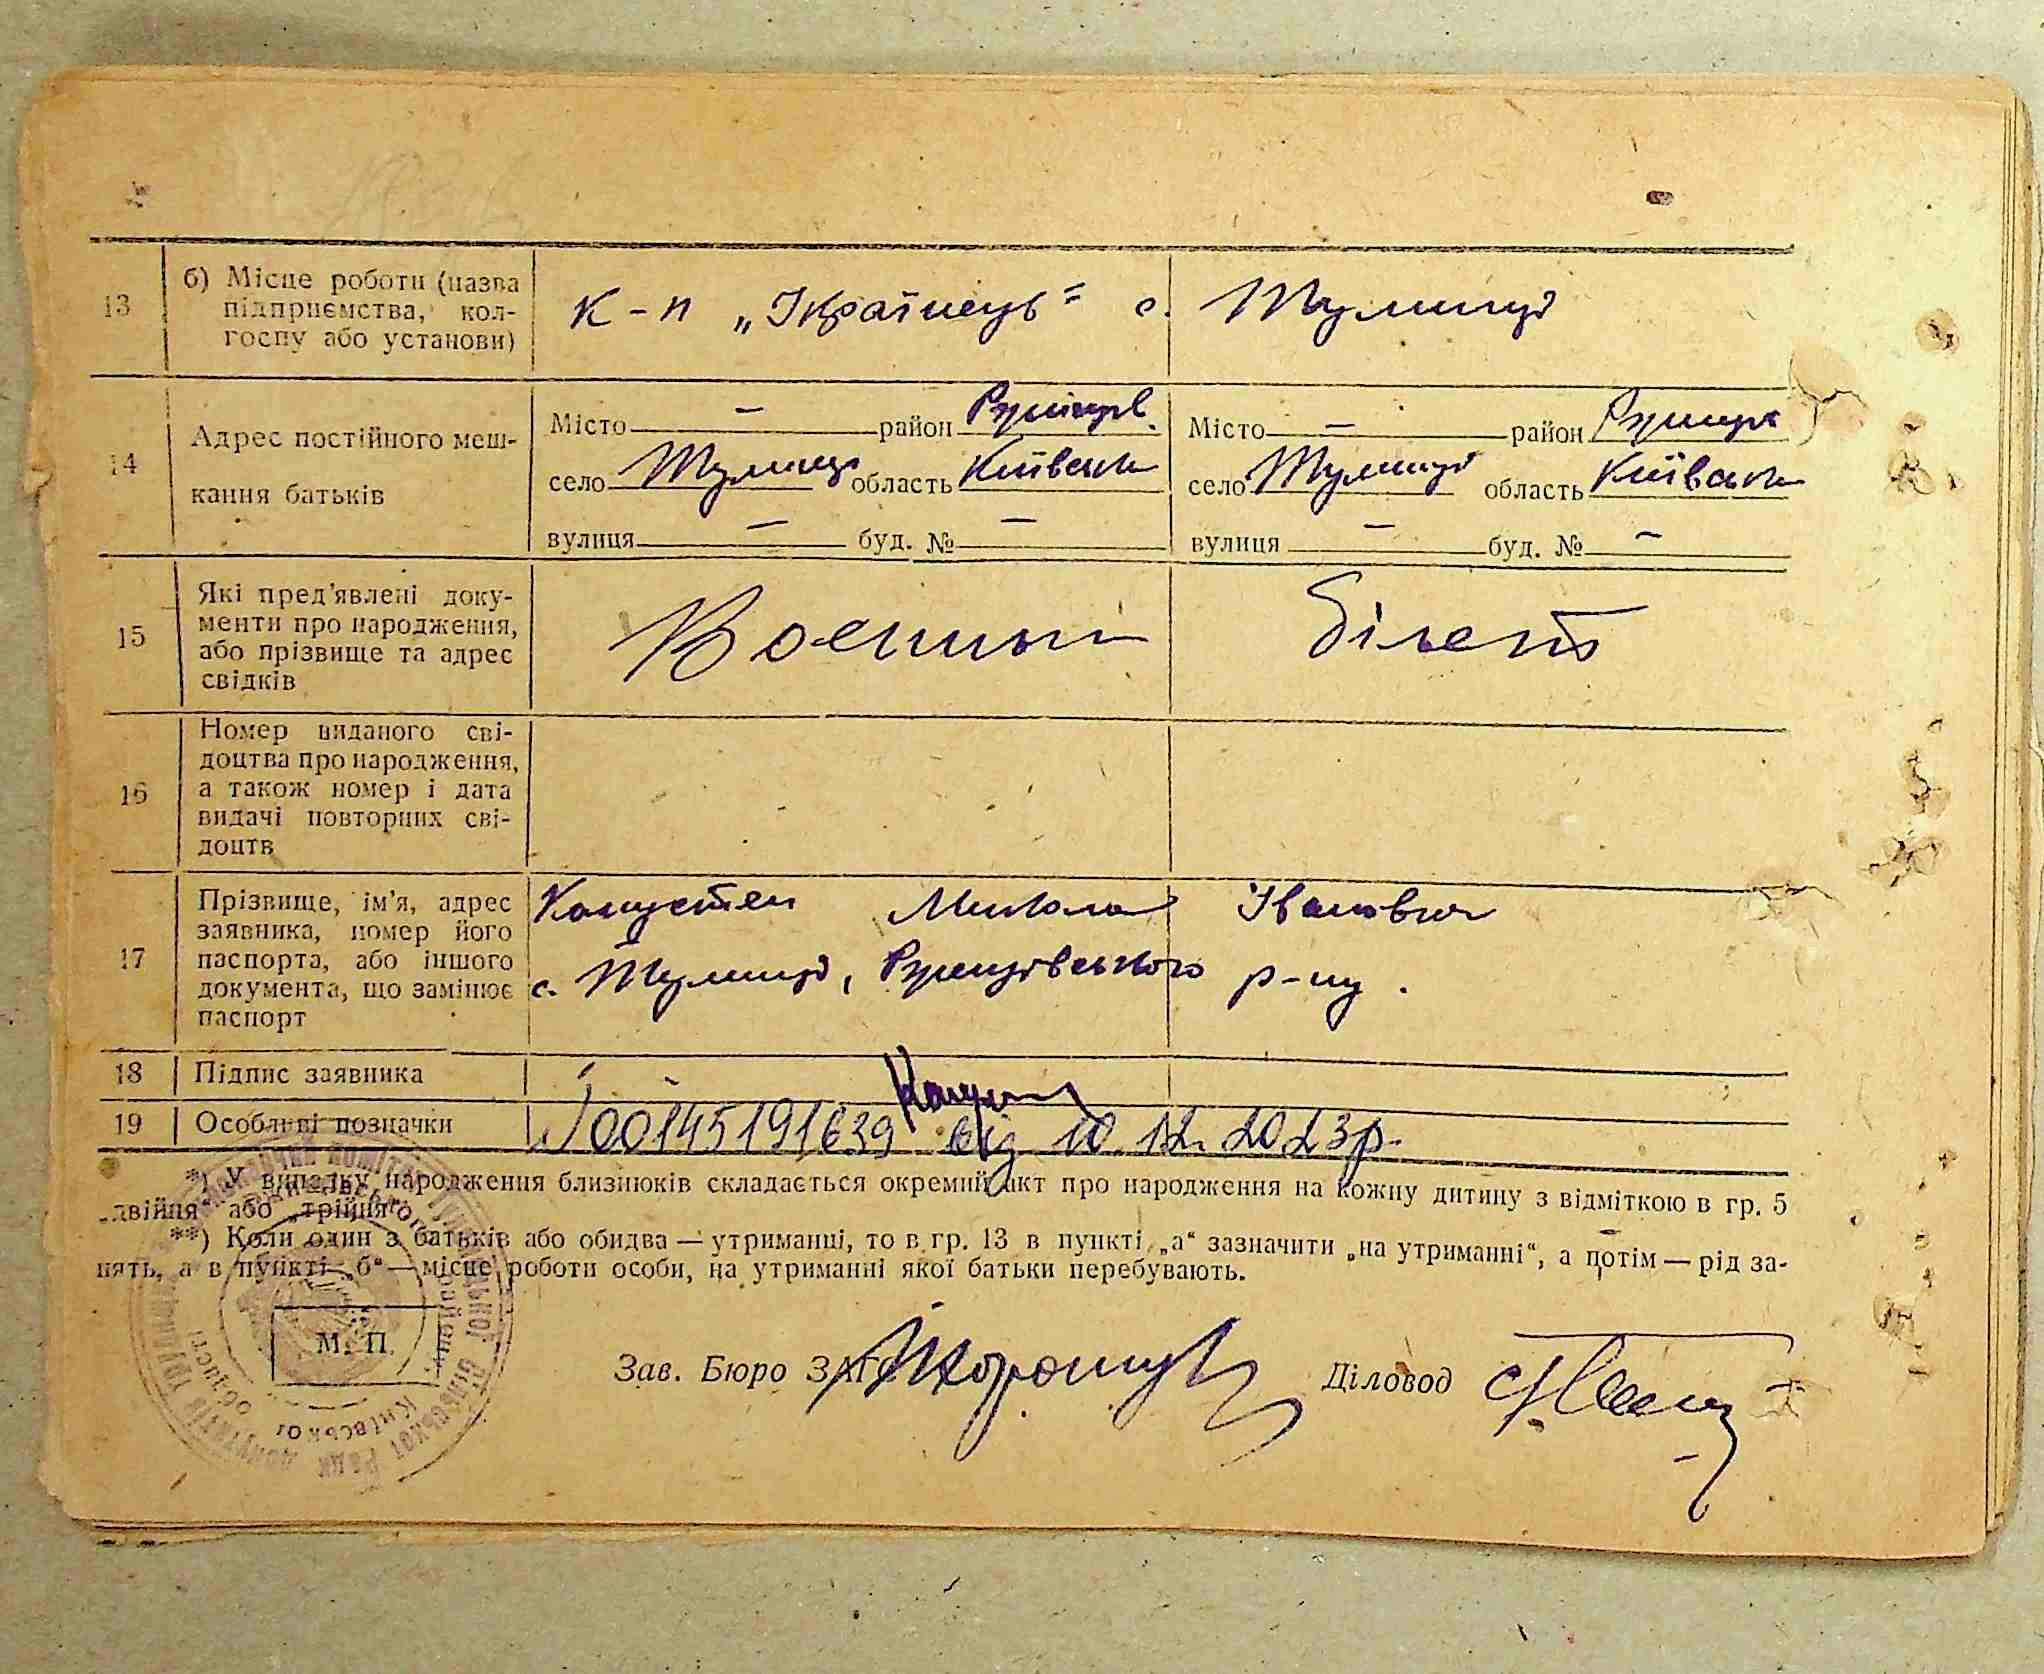 13
б) Місце роботи (назва
підприємства, кол-
госпу або установи)
к-п „Українець" с. Тулинці
14
Адрес постійного меш-
кання батьків
Місто — район Ржищів.
село Тулинці область Київськ
вулиця — буд. № —
Місто — район Ржищів
село Тулинці область Київськ
вулиця — буд. № —
15
Які пред'явлені доку-
менти про народження,
або прізвище та адрес
свідків
Военный білет
16
Номер виданого сві-
доцтва про народження,
а також номер і дата
видачі повторних сві-
доцтв
17
Прізвище, ім'я, адрес
заявника, номер його
паспорта, або іншого
документа, що замінює
паспорт
Микола Іванович
с. Тулинці, Ржищівського р-ну.
18
Підпис заявника
19
Особливі позначки
00145191639 від 10.12.2023р.
*) У випадку народження близнюків складається окремий акт про народження на кожну дитину з відміткою в гр. 5
„двійня" або „трійня".
**) Коли один з батьків або обидва — утриманці, то в гр. 13 в пункті „а" зазначити „на утриманні", а потім — рід за-
нять, а в пункті „б" — місце роботи особи, на утриманні якої батьки перебувають.
М. П.
Київської області
Зав. Бюро ЗАГС
Діловод